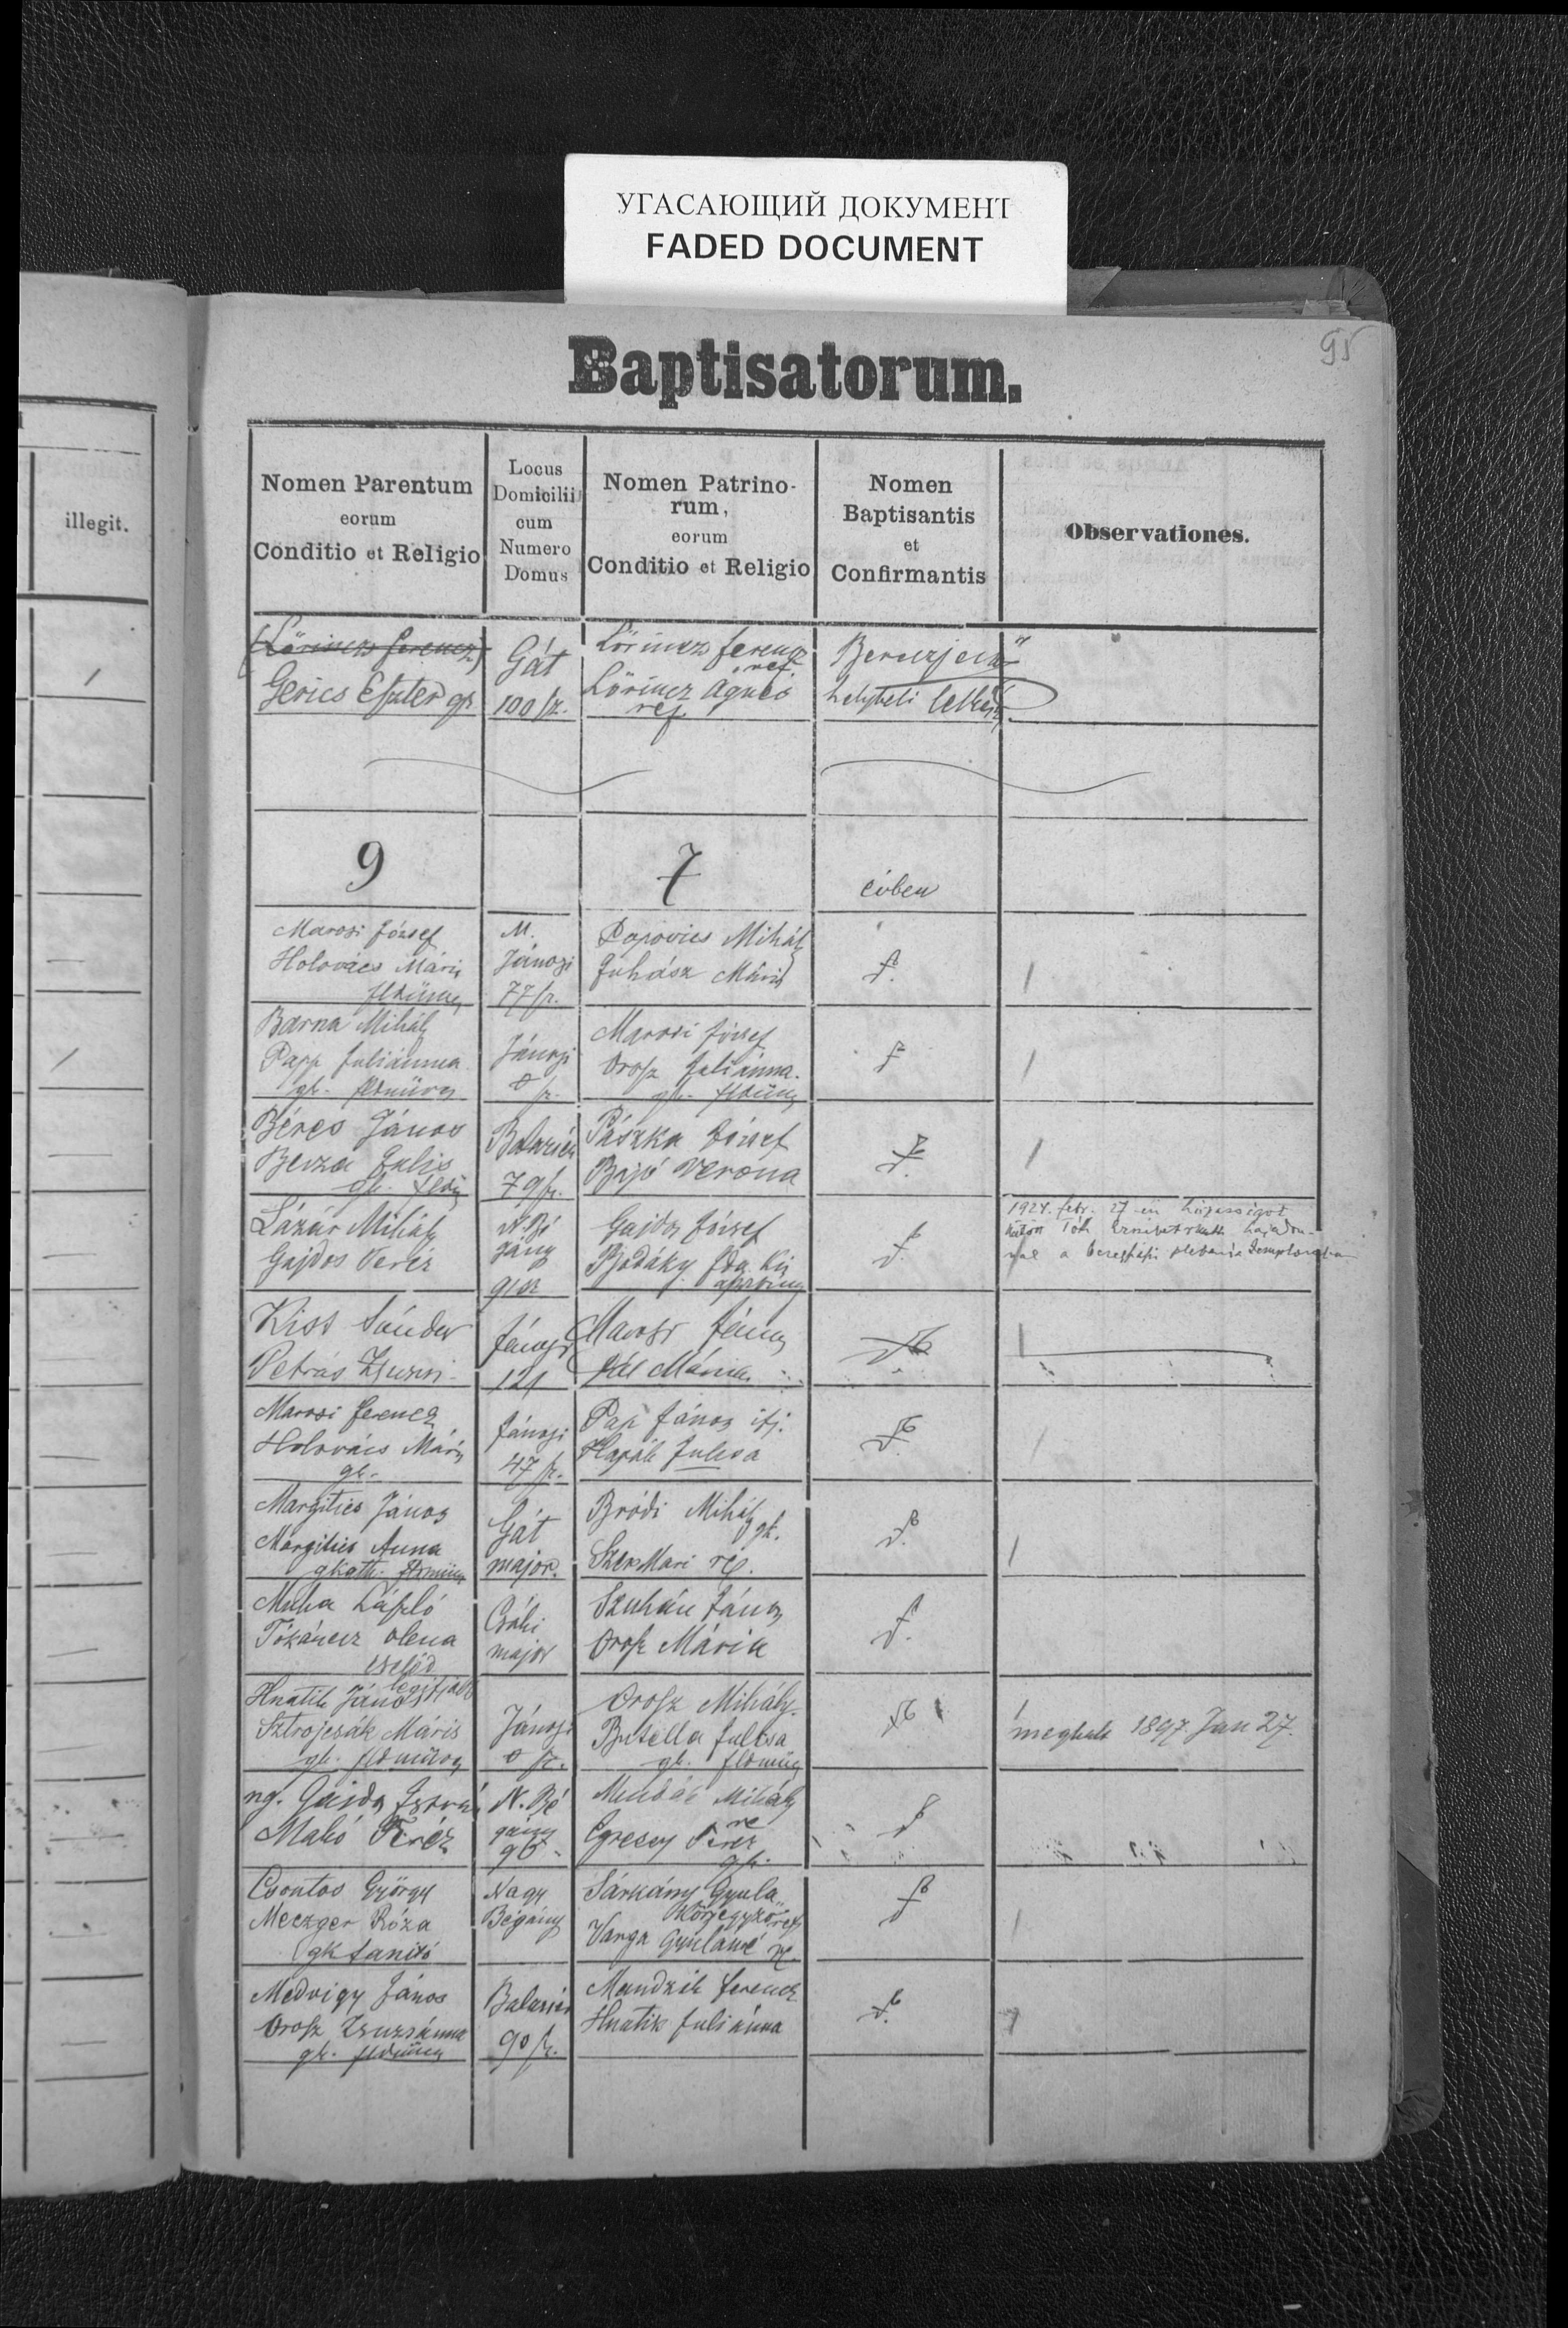 УГАСАЮЩИЙ ДОКУМЕНТ
FADED DOCUMENT
95
Baptisatorum.
illegit.
Nomen Parentum
eorum
Conditio et Religio
Locus
Domicilii
cum
Numero
Domus
Nomen Patrino-
rum,
eorum
Conditio et Religio
Nomen
Baptisantis
et
Confirmantis
Observationes.
(Lőrincz Ferencz)
Gerics Eszter gk
Gát
100 sz.
Lőrincz Ferencz
ref.
Lőrincz Ágnes
ref
helybeli lelkész
9
7
évben
Marosi József
Holovács Mária
M.
Jánosi
77 sz.
Popovics Mihály
Juhász Mária
Barna Mihály
Papp Juliánna
gk. földműves
Jánosi
0 sz.
Marosi József
Orosz Juliánna.
gk.
Béres János
Julis
gk.
79 sz.
Pászka József
Bajó Verona
Lázár Mihály
Gajdos Teréz
N. Bé
gány
91
Gajdos József
1924. febr. 27-én házasságot
Kiss Sándor
Petrás Zsuzsi
Jánosi
121
Marosi
Pál Mária
Marosi Ferencz
Holovács Mária
gk.
Jánosi
47 sz.
Pap János ifj.
Hapák Julcsa
Margitics János
Margitics Anna
gkath.
Gát
major.
Bródi Mihály gk.
Mari
Muha László
Olena
cseléd
Csáki
major
Szuhán János
Orosz Mária
Hnatik János
Sztrojcsák Máris
gk. földműves
Jánosi
0 sz.
Orosz Mihály.
Butella Julcsa
gk.
meghalt 1897. Jan 27.
ng. Gajdos
Makó Teréz
N. Bé
gány
96
Mihály
Egresy Teréz
gk.
Csontos György
Meczger Róza
gk tanító
Nagy
Bégány
Sárkány Gyula
körjegyző ref
Varga Gyuláné
Medvigy János
Orosz Zsuzsánna
gk.
90 sz.
Mandzik Ferencz
Hnatik Juliánna